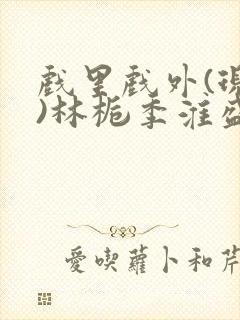 戲里戲外(現
)林栀季淮盛
愛喫蘿卜和芹